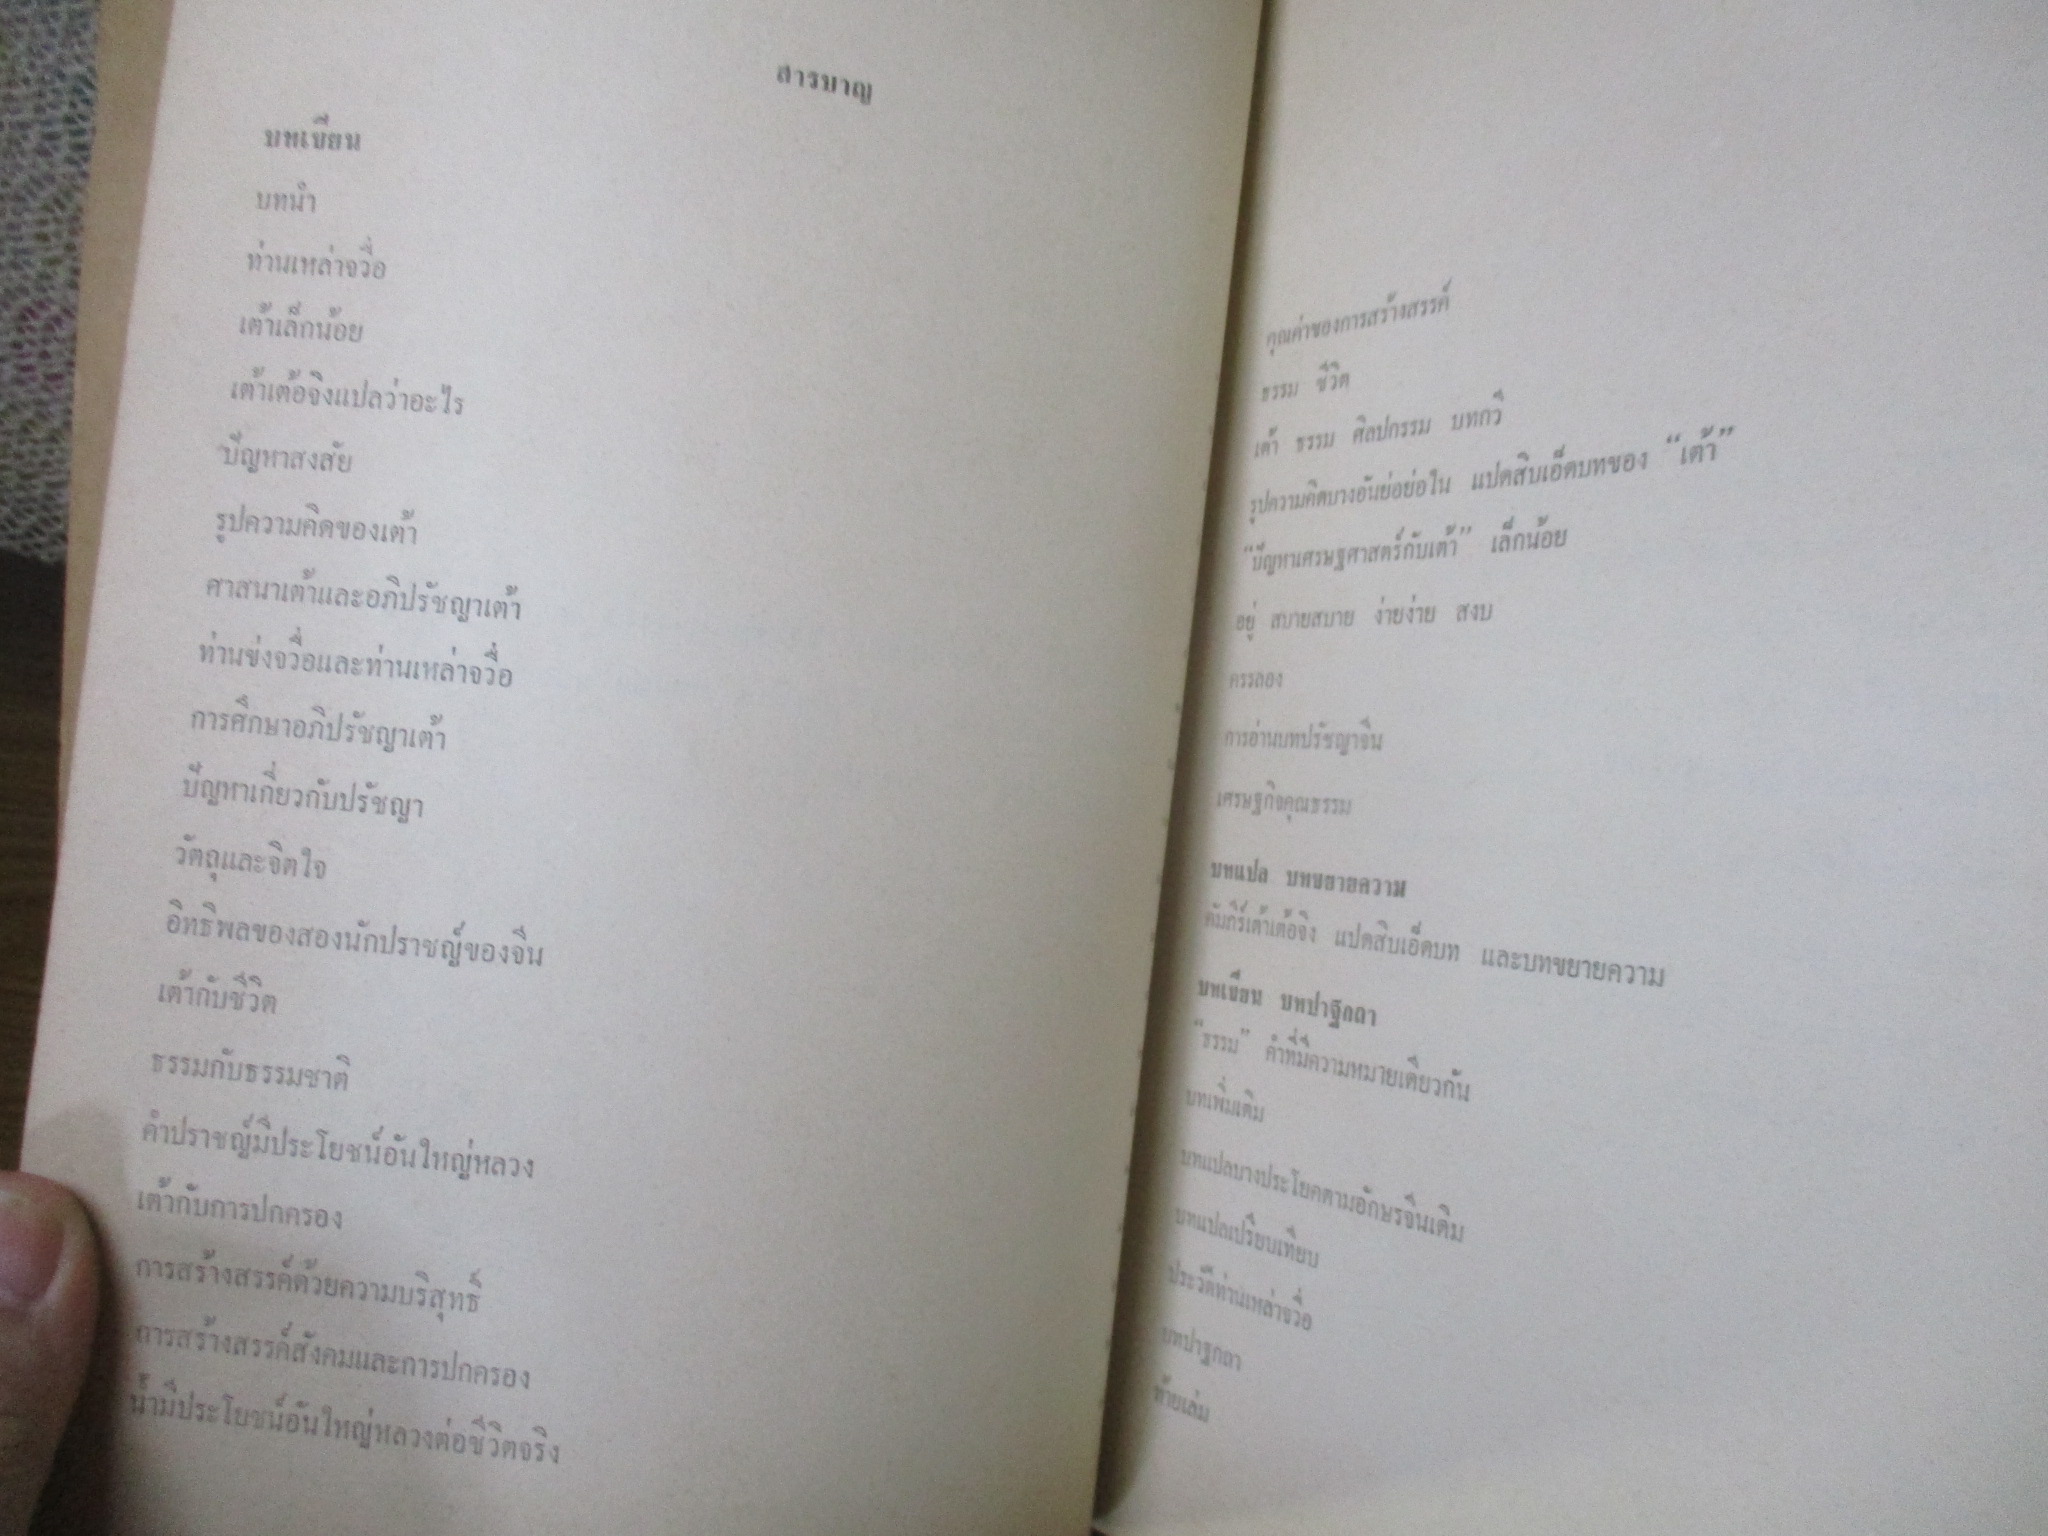 สารบาญ
บทเขียน
บทนำ
ท่านเหล่าจวื่อ
เต้าเล็กน้อย
เต้าเต้อจิงแปลว่าอะไร
ปัญหาสงสัย
รูปความคิดของเต้า
ศาสนาเต้าและอภิปรัชญาเต้า
ท่านข่งจวื่อและท่านเหล่าจวื่อ
การศึกษาอภิปรัชญาเต้า
ปัญหาเกี่ยวกับปรัชญา
วัตถุและจิตใจ
อิทธิพลของสองนักปราชญ์ของจีน
เต้ากับชีวิต
ธรรมกับธรรมชาติ
คำปราชญ์มีประโยชน์อันใหญ่หลวง
เต้ากับการปกครอง
การสร้างสรรค์ด้วยความบริสุทธิ์
การสร้างสรรค์สังคมและการปกครอง
น้ำมีประโยชน์อันใหญ่หลวงต่อชีวิตจริง
คุณค่าของการสร้างสรรค์
ธรรม ชีวิต
เต้า ธรรม ศิลปกรรม บทกวี
รูปความคิดบางอันย่อย่อใน แปดสิบเอ็ดบทของ “เต้า”
“ปัญหาเศรษฐศาสตร์กับเต้า” เล็กน้อย
อยู่ สบายสบาย ง่ายง่าย สงบ
ครรลอง
การอ่านบทปรัชญาจีน
เศรษฐกิจคุณธรรม
บทแปล บทขยายความ
คัมภีร์เต้าเต้อจิง แปดสิบเอ็ดบท และบทขยายความ
บทเขียน บทปาฐกถา
“ธรรม” คำที่มีความหมายเดียวกัน
บทเพิ่มเติม
บทแปลบางประโยคตามอักษรจีนเดิม
บทแปลเปรียบเทียบ
ประวัติท่านเหล่าจวื่อ
บทปาฐกถา
ท้ายเล่ม